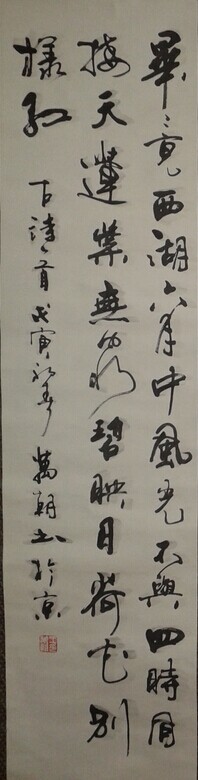 畢竟西湖六月中風光不與四時同
接天蓮葉無窮碧映日荷花別
樣紅
古詩一首戊寅初春 朝書於京